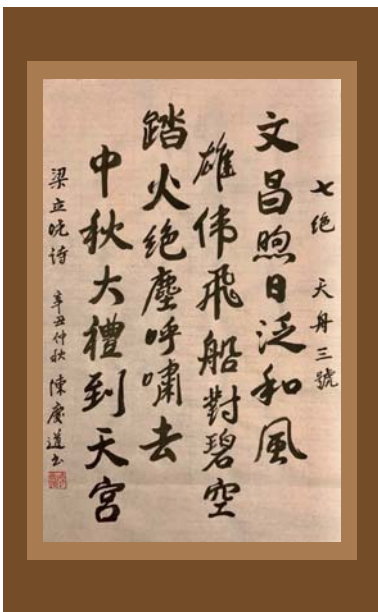 七绝 天舟三號
文昌煦日泛和風
雄伟飛船對碧空
踏火绝塵呼嘯去
中秋大禮到天宫
梁立晄诗 辛丑仲秋 陳慶道书